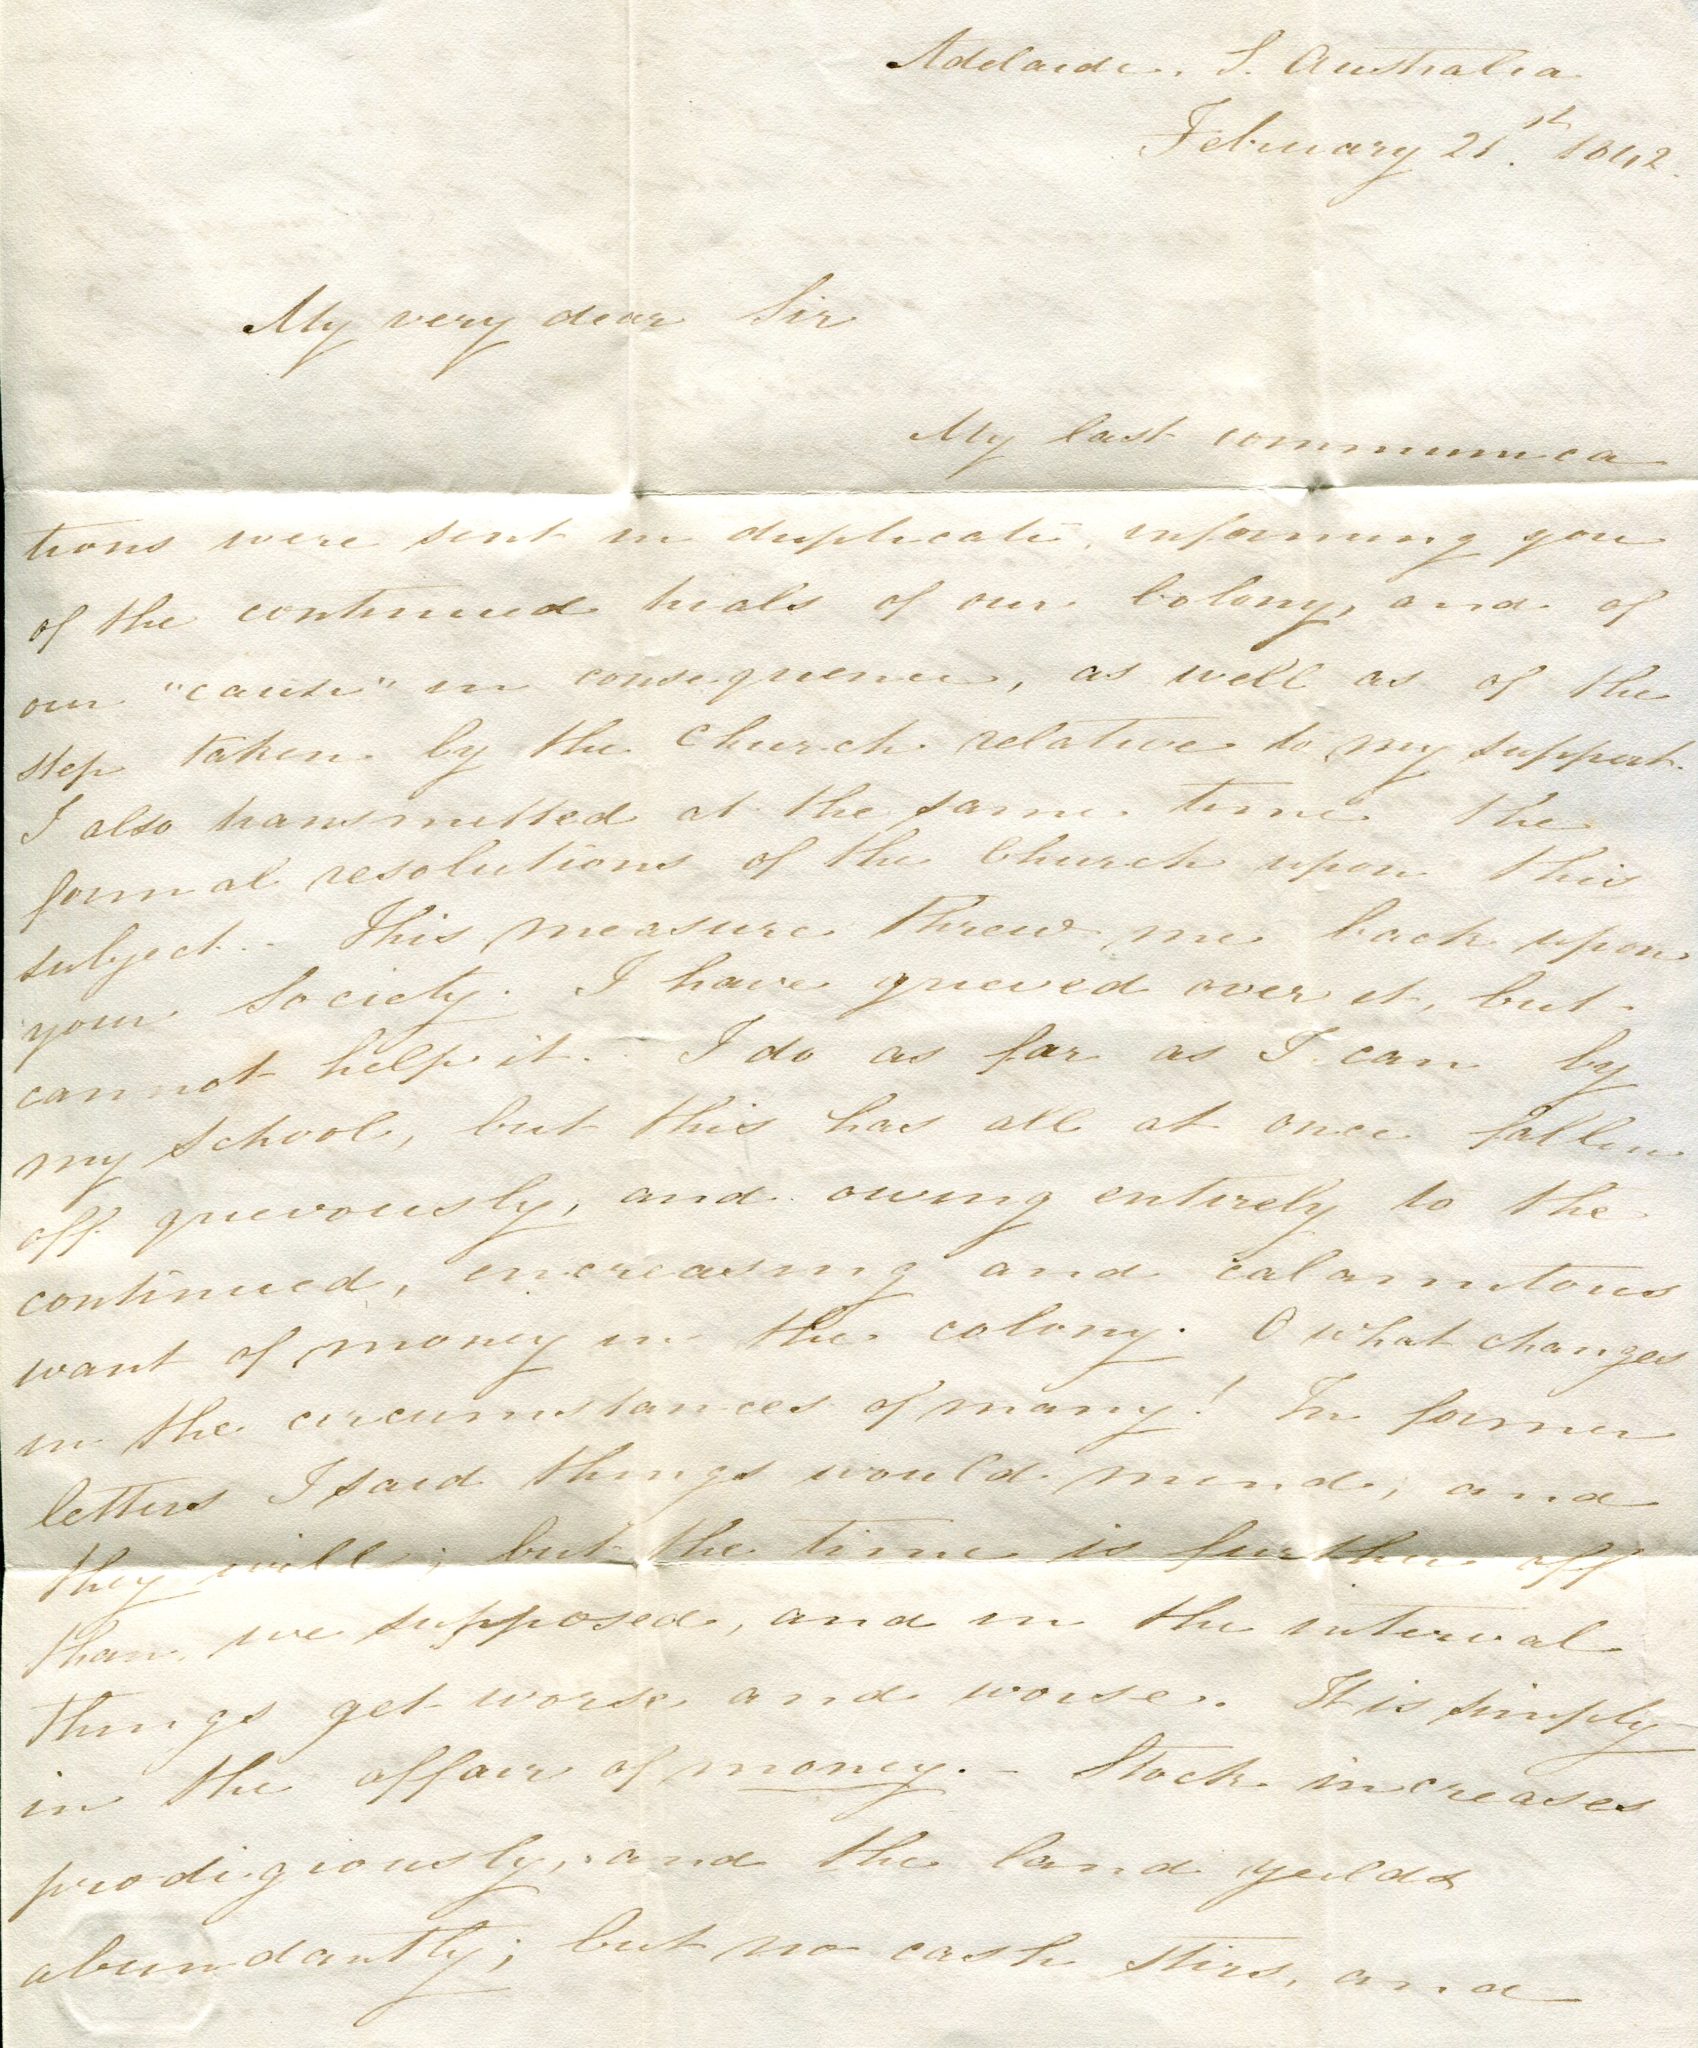 Adelaide. S. Australia
February 21st. 1842.
My very dear Sir
My last communica
tions were sent in duplicate, informing you
of the continued trials of our Colony, and of
our "cause" in consequence, as well as of the
step taken by the Church relative to my support.
I also transmitted at the same time the
formal resolutions of the Church upon this
subject.. This measure threw me back upon
your Society. I have grieved over it, but
cannot help it. I do as far as I can by
my school, but this has all at once fallen
off grievously, and owing entirely to the
continued, increasing and calamitous
want of money in the colony. O what changes
in the circumstances of many! In former
letters I said things would mend, and
they will; but the time is further off
than we supposed, and in the interval
things get worse and worse. It is simply
in the affair of money. – Stock increases
prodigiously, and the land yeilds
abundantly; but no cash stirs, and